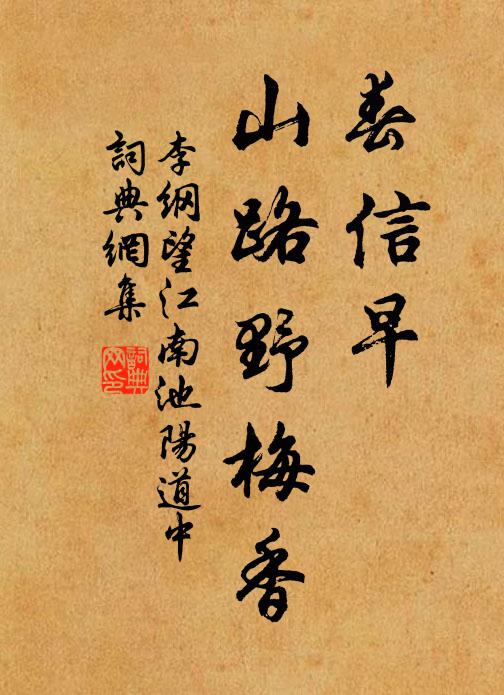 春信早
山路野梅香
李綱望江南池陽道中
詞典網集
詞典網印